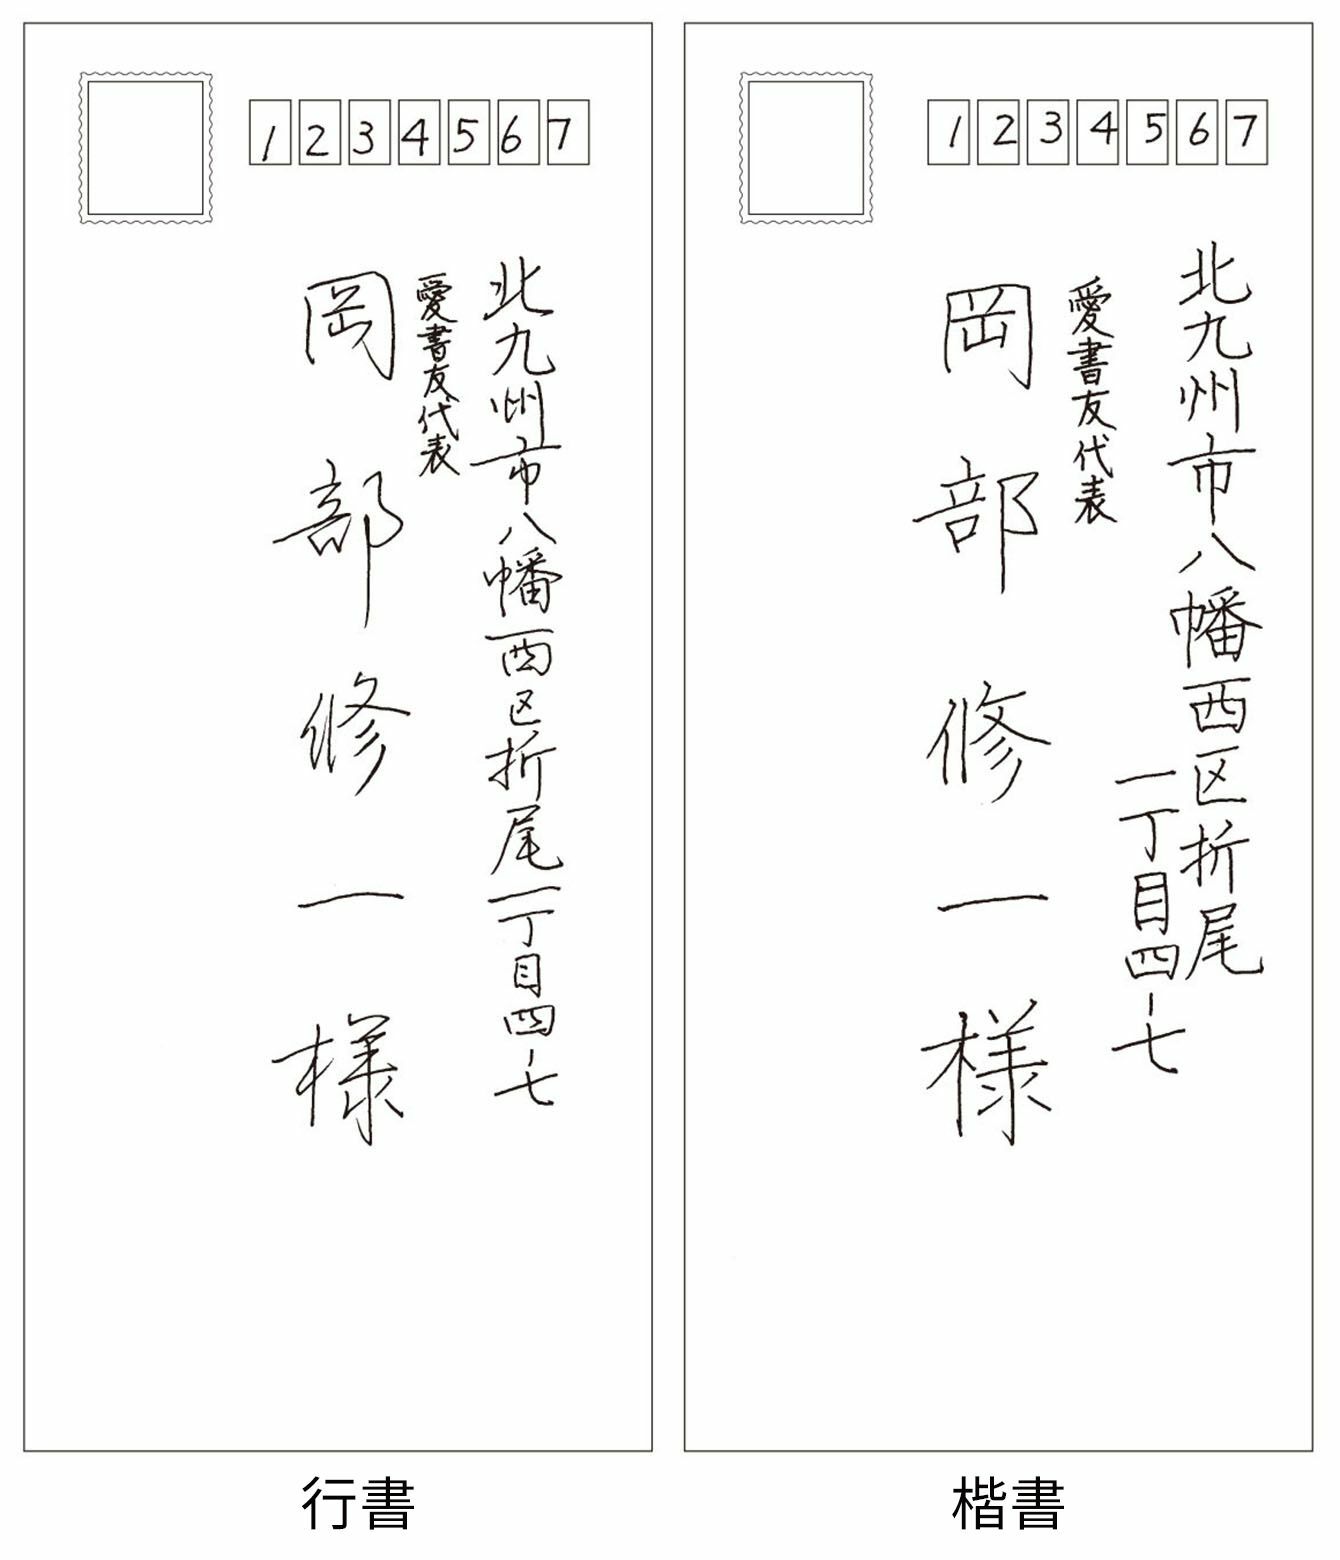 1234567
北九州市八幡西区折尾一丁目四-七
愛書友代表
岡部修一様
行書
1234567
北九州市八幡西区折尾
一丁目四-七
愛書友代表
岡部修一様
楷書